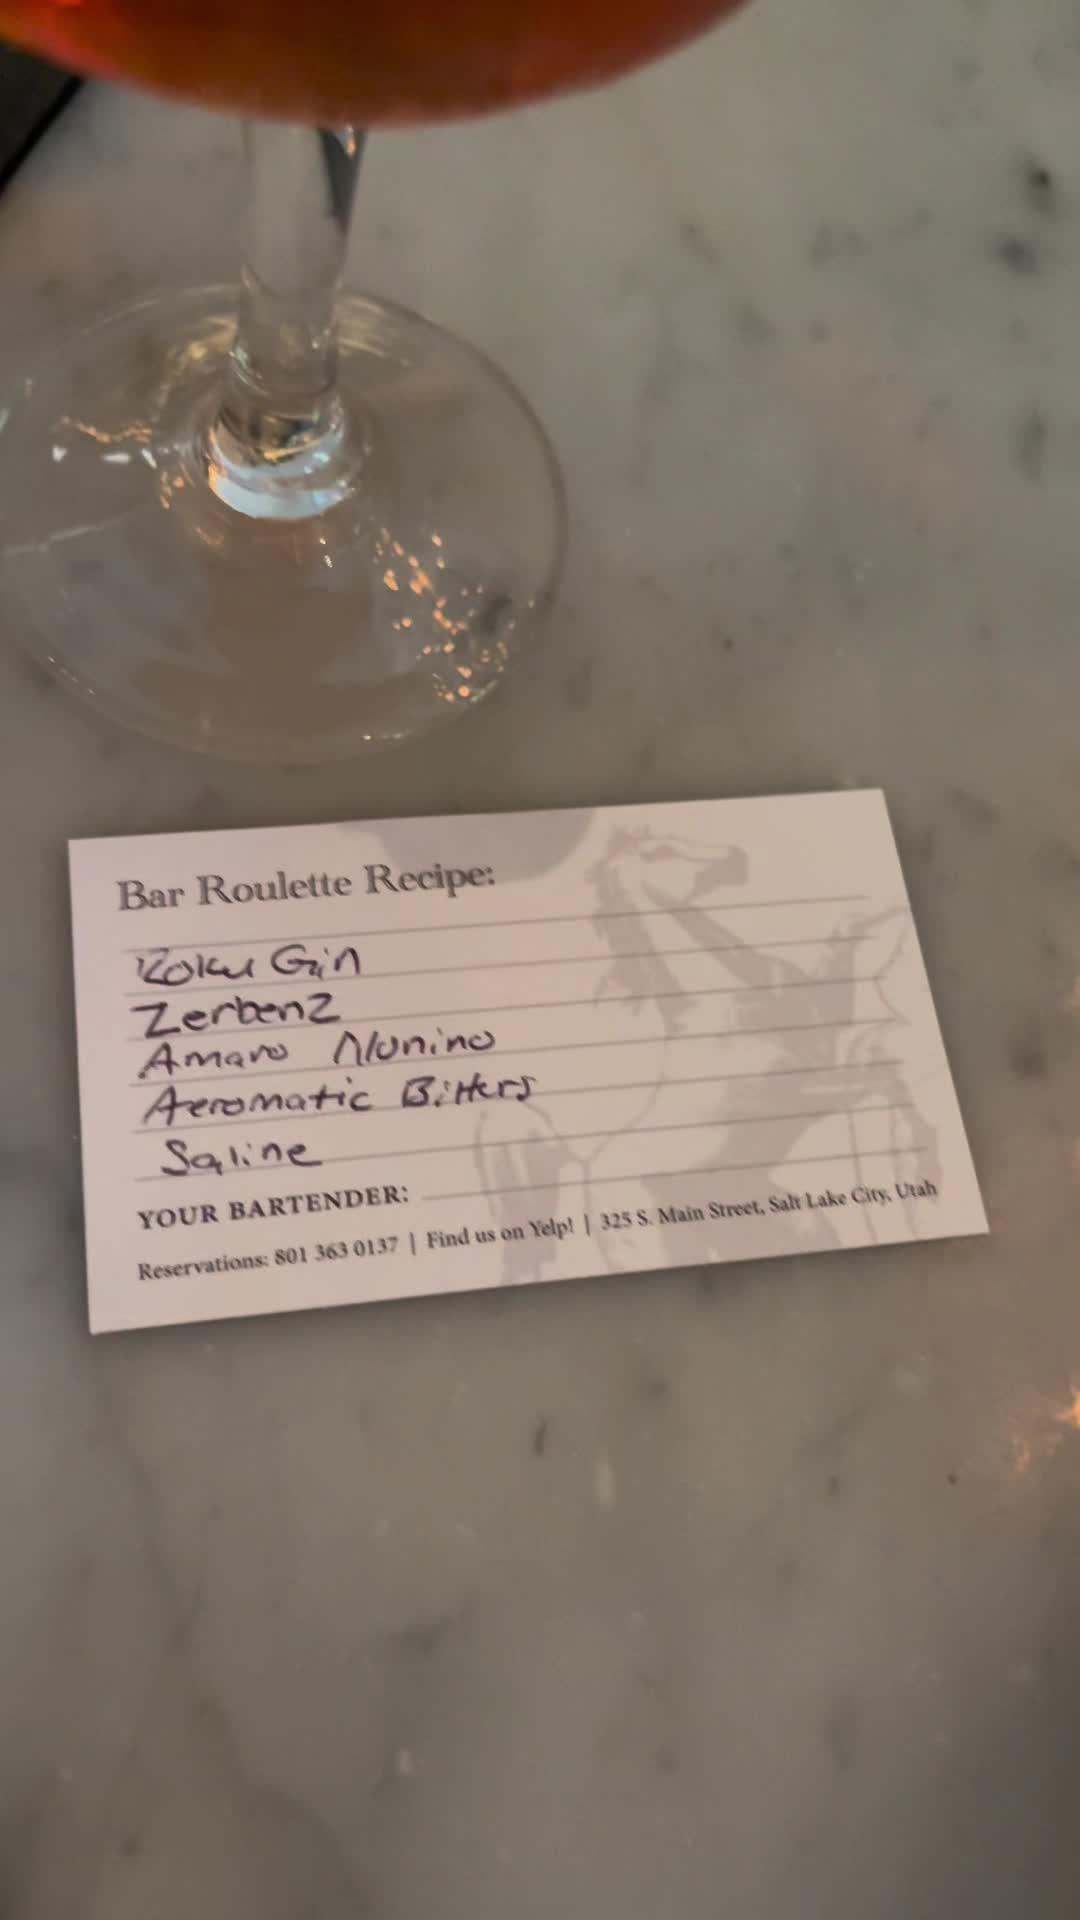 Bar Roulette Recipe:
Roku Gin
Zerbenz
Amaro Nonino
Aeromatic Bitters
Saline
YOUR BARTENDER:
Reservations: 801 363 0137 | Find us on Yelp! | 325 S. Main Street, Salt Lake City, Utah